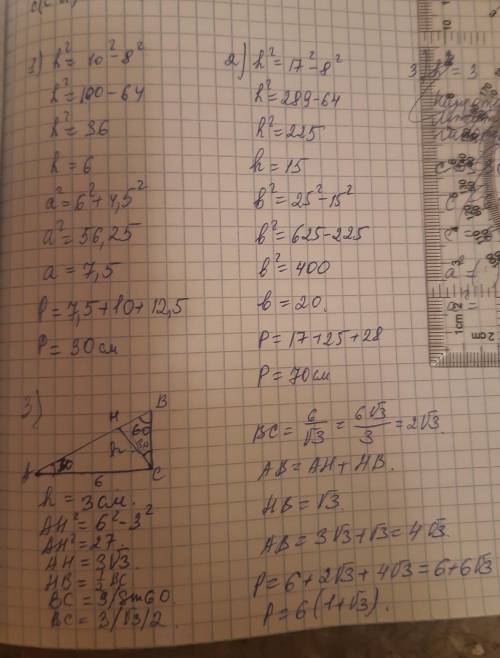 1) h²=10²-8²
h²=100-64
h²=36
h=6
a²=6²+4,5²
a²=56,25
a=7,5
P=7,5+10+12,5
P=30см
2) h²=17²-8²
h²=289-64
h²=225
h=15
b²=25²-15²
b²=625-225
b²=400
b=20.
P=17+25+28
P=70см
3 h=3
3)
H
B
60
30
h
30
A
C
6
h=3см.
AH²=6²-3²
AH²=27.
AH=3√3.
BC=3/sin60
BC=3/√3/2
BC=6/√3=6√3/3=2√3
AB=AH+HB.
HB=√3.
AB=3√3+√3=4√3.
P=6+2√3+4√3=6+6√3
P=6(1+√3).
1cm 2